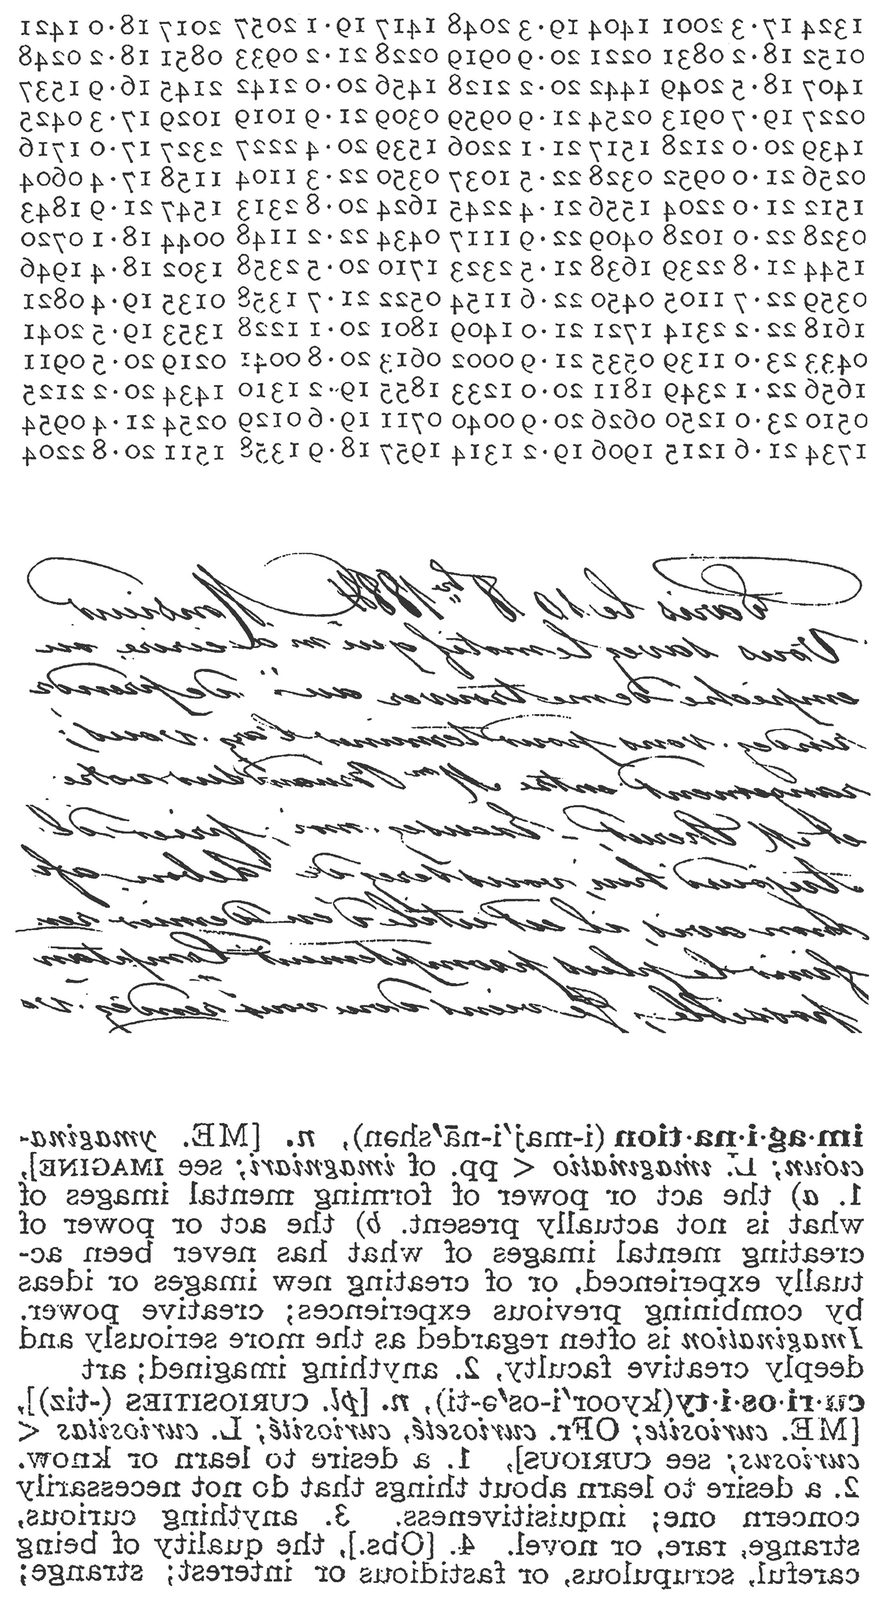 1324 17·3 2001 1404 19·3 2048 1417 19·1 2057 2017 18·0 1421
0152 18·2 0831 0221 20·9 0919 0228 21·2 0933 0851 18·2 0248
1407 18·5 2049 1442 20·2 2128 1456 20·0 2142 2145 16·9 1537
0227 19·7 0913 0254 21·9 0959 0309 21·9 1019 1029 17·3 0425
1439 20·0 2128 1517 21·1 2206 1539 20·4 2227 2327 17·0 1716
0256 21·0 0952 0328 22·5 1037 0350 22·3 1104 1158 17·4 0604
1512 21·0 2204 1556 21·4 2245 1624 20·8 2313 1547 21·9 1843
0328 22·0 1028 0409 22·9 1117 0434 22·2 1148 0044 18·1 0720
1544 21·8 2239 1638 21·5 2323 1710 20·5 2358 1302 18·4 1946
0359 22·7 1105 0450 22·6 1154 0522 21·7 1358 0135 19·4 0821
1618 22·2 2314 1721 21·0 1409 1801 20·1 1228 1353 19·5 2041
0433 23·0 1139 0535 21·9 0002 0613 20·8 0041 0219 20·5 0911
1656 22·1 2349 1811 20·0 1233 1855 19·2 1310 1434 20·2 2125
0510 23·0 1250 0626 20·9 0040 0711 19·6 0129 0254 21·4 0954
1734 21·6 1215 1906 19·2 1314 1957 18·9 1358 1511 20·8 2204
Paris le 10 8bre 1884 Monsieur
Vous savez le motif qui m'a
empêche de me trouver au de
rendez-vous pour terminer vous;
entre Mr sur votre
et M Excusez-moi; prier
toujours vous serez de
mon avis, il est utile d'en
le plus promptement
possible; Je viens donc vous
im·ag·i·na·tion (i-maj'i-nā'shən), n. [ME. ymagina-
cioun; L. imaginatio < pp. of imaginari; see IMAGINE],
1. a) the act or power of forming mental images of
what is not actually present. b) the act or power of
creating mental images of what has never been ac-
tually experienced, or of creating new images or ideas
by combining previous experiences; creative power.
Imagination is often regarded as the more seriously and
deeply creative faculty, 2. anything imagined; art
cu·ri·os·i·ty(kyoor'i-os'ə-ti), n. [pl. CURIOSITIES (-tiz)],
[ME. curiosite; OFr. curioseté, curiosité; L. curiositas <
curiosus; see CURIOUS], 1. a desire to learn or know.
2. a desire to learn about things that do not necessarily
concern one; inquisitiveness. 3. anything curious,
strange, rare, or novel. 4. [Obs.], the quality of being
careful, scrupulous, or fastidious or interest; strange;